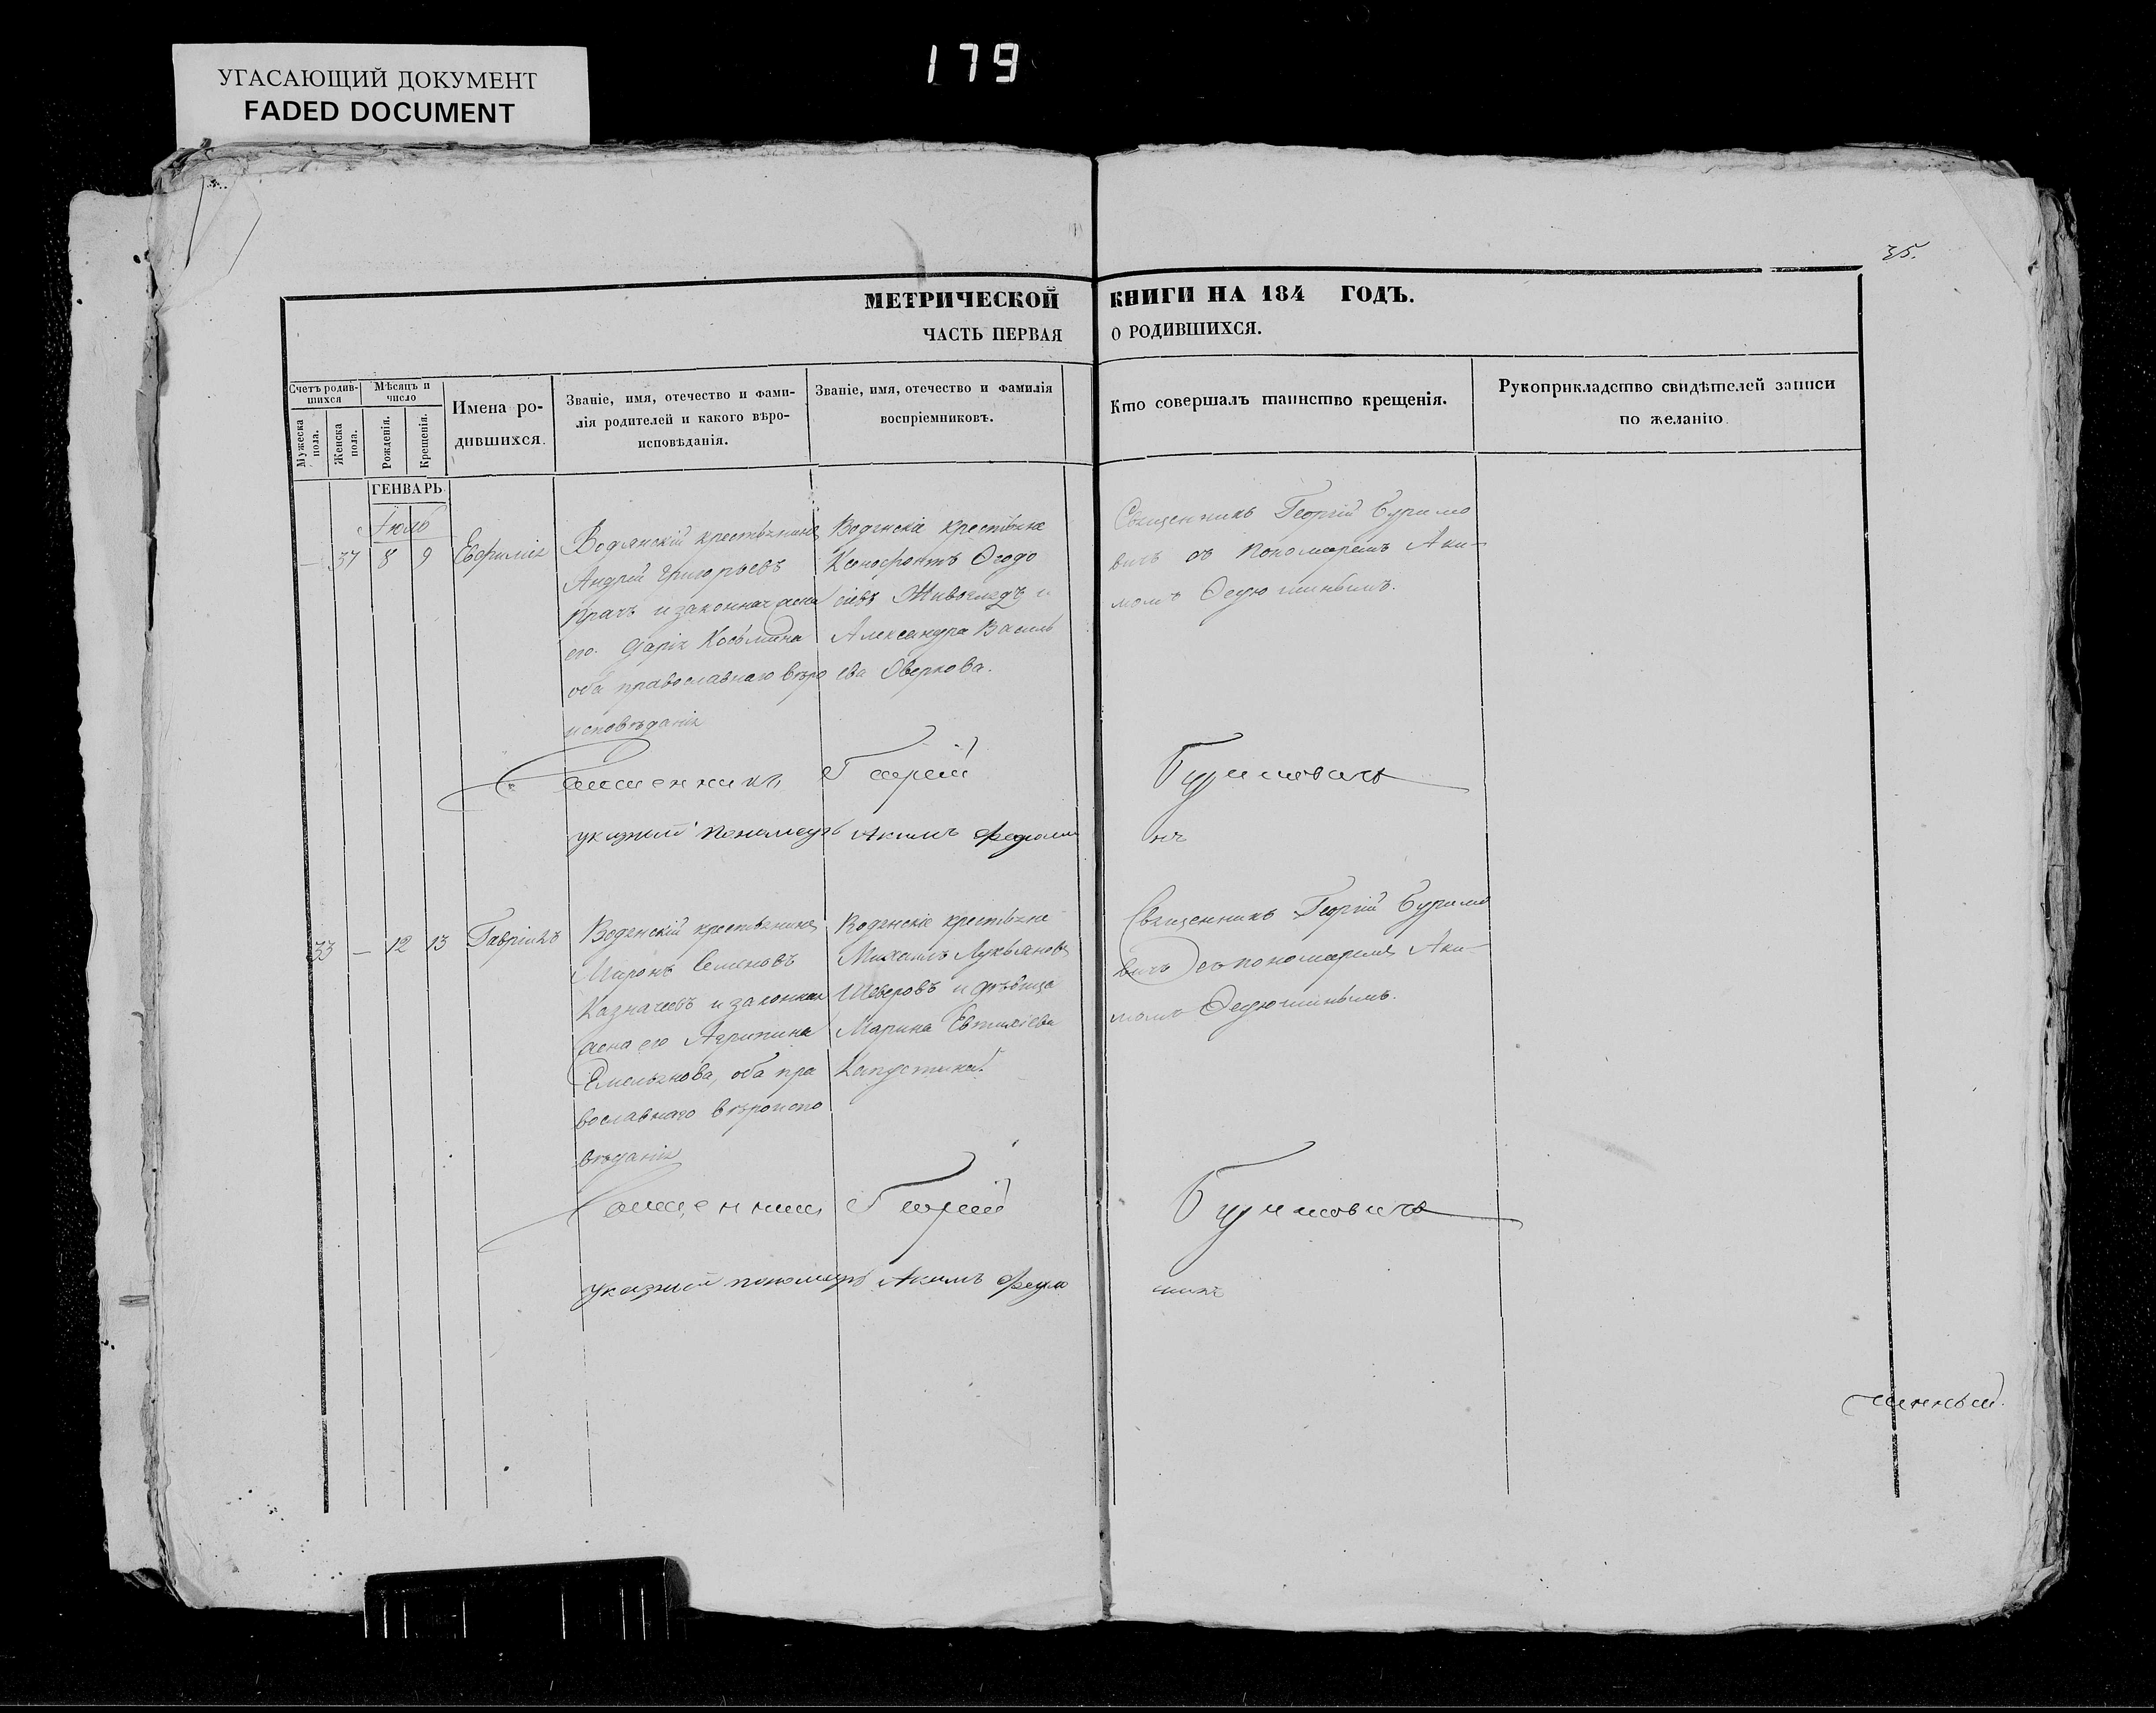 УГАСАЮЩИЙ ДОКУМЕНТ
FADED DOCUMENT
179
35.
МЕТРИЧЕСКОЙ КНИГИ НА 184 ГОДЪ.
ЧАСТЬ ПЕРВАЯ О РОДИВШИХСЯ.
Счетъ родив-
шихся
Мужеска пола.
Женска пола.
Мѣсяцъ и
число
Рожденія.
Крещенія.
Имена ро-
дившихся.
Званіе, имя, отечество и фами-
лія родителей и какого вѣро-
исповѣданія.
Званіе, имя, отечество и фамилія
воспріемниковъ.
Кто совершалъ таинство крещенія.
Рукоприкладство свидѣтелей записи
по желанію.
ГЕНВАРЬ
Іюль
— 37 8 9
Евфимія
Водянскій крестьянинъ
Андрей Григорьевъ
Крачъ и законная жена
его Дарія Косьмина
оба православнаго вѣро
исповѣданія
Водянскіе крестьяне
Ксенофонтъ Ѳеодо
сіевъ Живоглядъ и
Александра Василь
ева Оверкова.
Священникъ Георгій Буримо
вичъ съ пономаремъ Аки-
момъ Ѳедюшинымъ.
Священникъ Георгій Буримовичъ
указный пономарь Акимъ Федюши нъ
33 — 12 13
Гавріилъ
Водянскій крестьянинъ
Миронъ Семеновъ
Казначеевъ и законная
жена его Агрипина
Емельянова, оба пра
вославнаго вѣроиспо
вѣданія
Водянскіе крестьяне
Михаилъ Лукьяновъ
Шеверовъ и дѣвица
Марина Евтихіева
Капустина.
Священникъ Георгій Буримо
вичъ съ пономаремъ Аки-
момъ Ѳедюшинымъ.
Священникъ Георгій Буримовичъ
указный пономарь Акимъ Федю шинъ